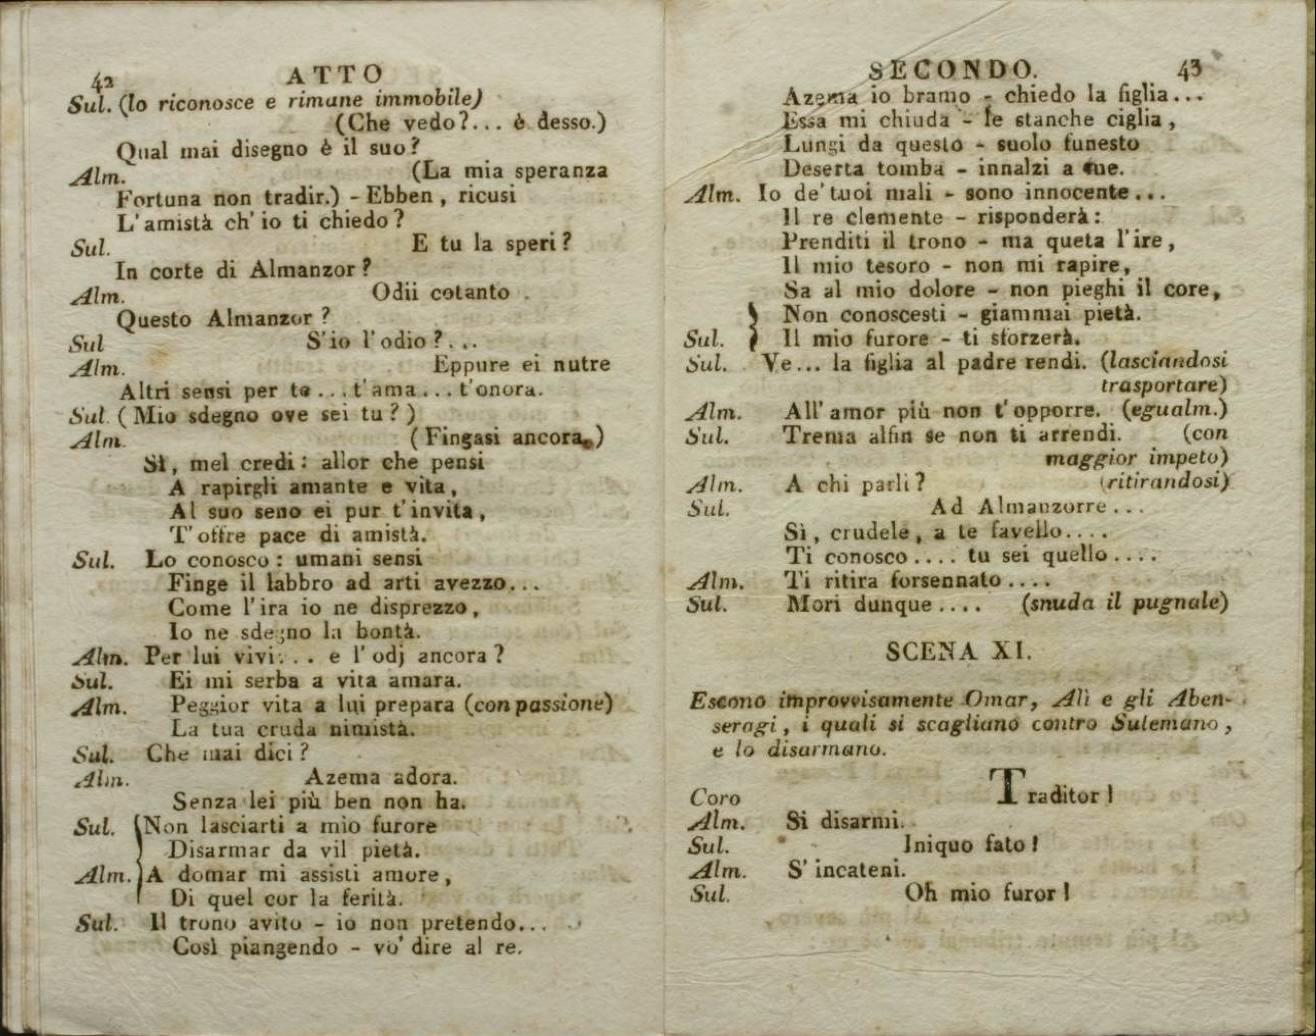 42 ATTO
Sul. (lo riconosce e rimane immobile)
(Che vedo?... è desso.)
Qual mai disegno è il suo?
Alm. (La mia speranza
Fortuna non tradir.) - Ebben, ricusi
L'amistà ch'io ti chiedo?
Sul. E tu la speri?
In corte di Almanzor?
Alm. Odii cotanto
Questo Almanzor?
Sul S'io l'odio?...
Alm. Eppure ei nutre
Altri sensi per te...t'ama...t'onora.
Sul. (Mio sdegno ove sei tu?)
Alm. (Fingasi ancora.)
Sì, mel credi: allor che pensi
A rapirgli amante e vita,
Al suo seno ei pur t'invita,
T'offre pace di amistà.
Sul. Lo conosco: umani sensi
Finge il labbro ad arti avezzo...
Come l'ira io ne disprezzo,
Io ne sdegno la bontà.
Alm. Per lui vivi... e l'odj ancora?
Sul. Ei mi serba a vita amara.
Alm. Peggior vita a lui prepara (con passione)
La tua cruda nimistà.
Sul. Che mai dici?
Alm. Azema adora.
Senza lei più ben non ha.
Sul. Non lasciarti a mio furore
Disarmar da vil pietà.
Alm. A domar mi assisti amore,
Di quel cor la ferità.
Sul. Il trono avito - io non pretendo...
Così piangendo - vo' dire al re.
SECONDO. 43
Azema io bramo - chiedo la figlia...
Essa mi chiuda - le stanche ciglia,
Lungi da questo - suolo funesto
Deserta tomba - innalzi a me.
Alm. Io de' tuoi mali - sono innocente...
Il re clemente - risponderà:
Prenditi il trono - ma queta l'ire,
Il mio tesoro - non mi rapire,
Sa al mio dolore - non pieghi il core,
Non conoscesti - giammai pietà.
Sul. Il mio furore - ti sforzerà.
Sul. Ve... la figlia al padre rendi. (lasciandosi
trasportare)
Alm. All'amor più non t'opporre. (egualm.)
Sul. Trema alfin se non ti arrendi. (con
maggior impeto)
Alm. A chi parli? (ritirandosi)
Sul. Ad Almanzorre...
Sì, crudele, a te favello....
Ti conosco.... tu sei quello....
Alm. Ti ritira forsennato....
Sul. Mori dunque.... (snuda il pugnale)
SCENA XI.
Escono improvvisamente Omar, Alì e gli Aben-
seragi, i quali si scagliano contro Sulemano,
e lo disarmano.
Coro Traditor!
Alm. Si disarmi.
Sul. Iniquo fato!
Alm. S'incateni.
Sul. Oh mio furor!